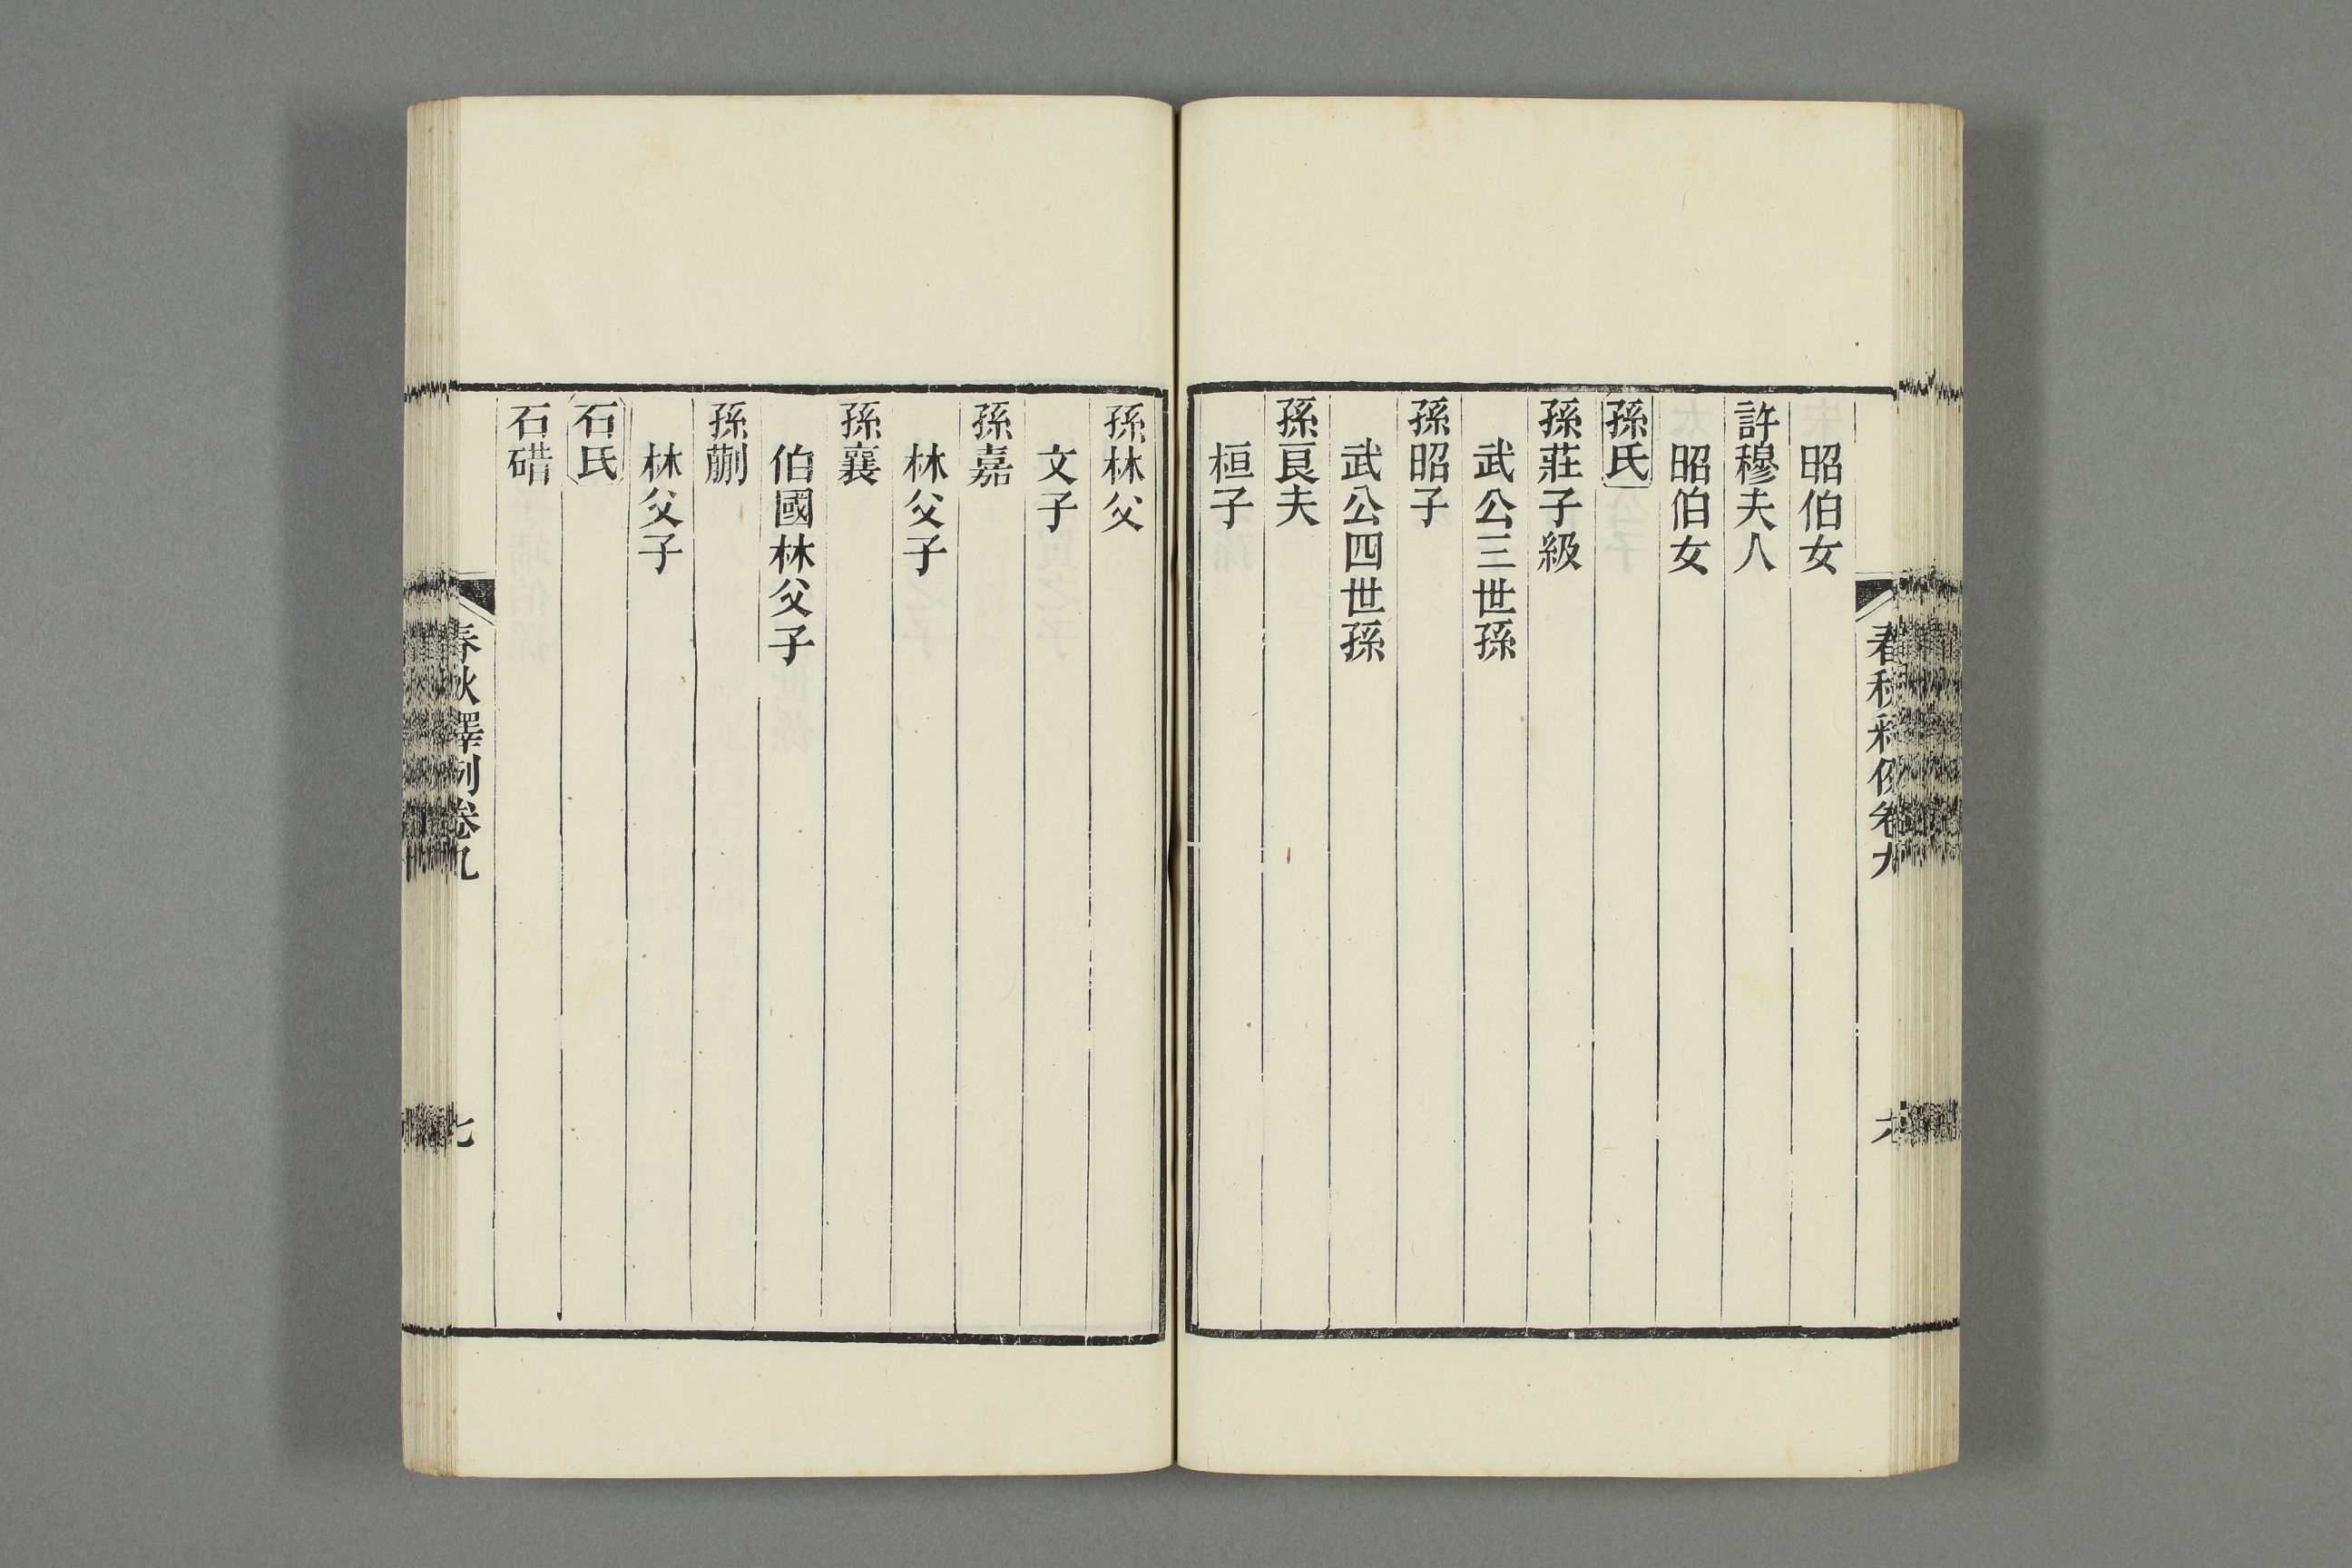 春秋釋例卷九
六
昭伯女
許穆夫人
昭伯女
孫氏
孫莊子級
武公三世孫
孫昭子
武公四世孫
孫良夫
桓子
孫林父
文子
孫嘉
林父子
孫襄
伯國林父子
孫蒯
林父子
石氏
石碏
春秋釋例卷九
七